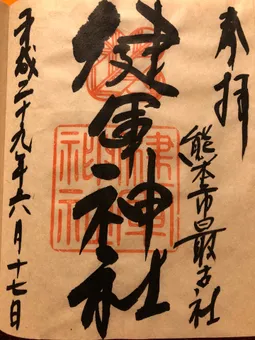 奉拝
熊本市最古社
健軍神社
平成二十九年六月十七日